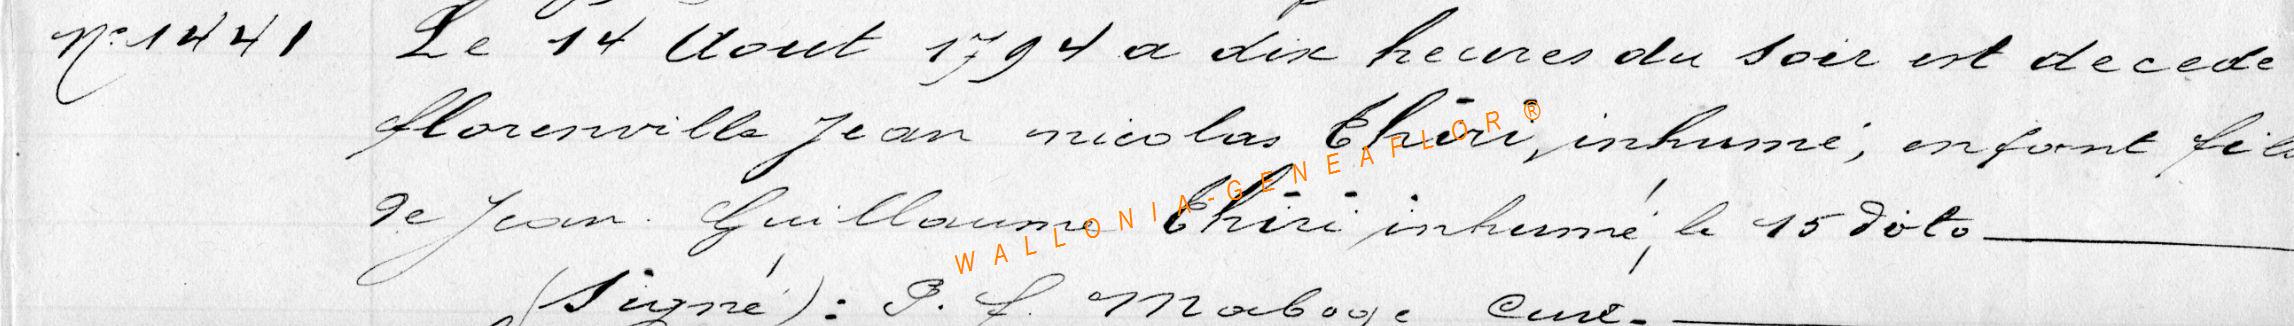 N° 1441 Le 14 Aout 1794 a dix heures du soir est decede
florenville Jean nicolas Thiri, inhumé, enfant fils
de Jean Guillaume Thiri inhumé, le 15 dito
(Signé): P. f. Maboge Curé.
WALLONIA-GENEAFLOR®